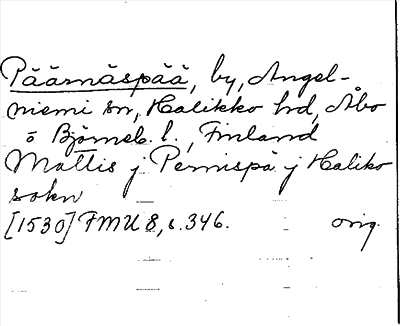 Päärnäspää, by, Angel-
niemi sn, Halikko hd, Åbo
o Björneb. l., Finland
Mattis j Pernispä j Haliko
sokn
[1530] FMU 8, s. 346. orig.